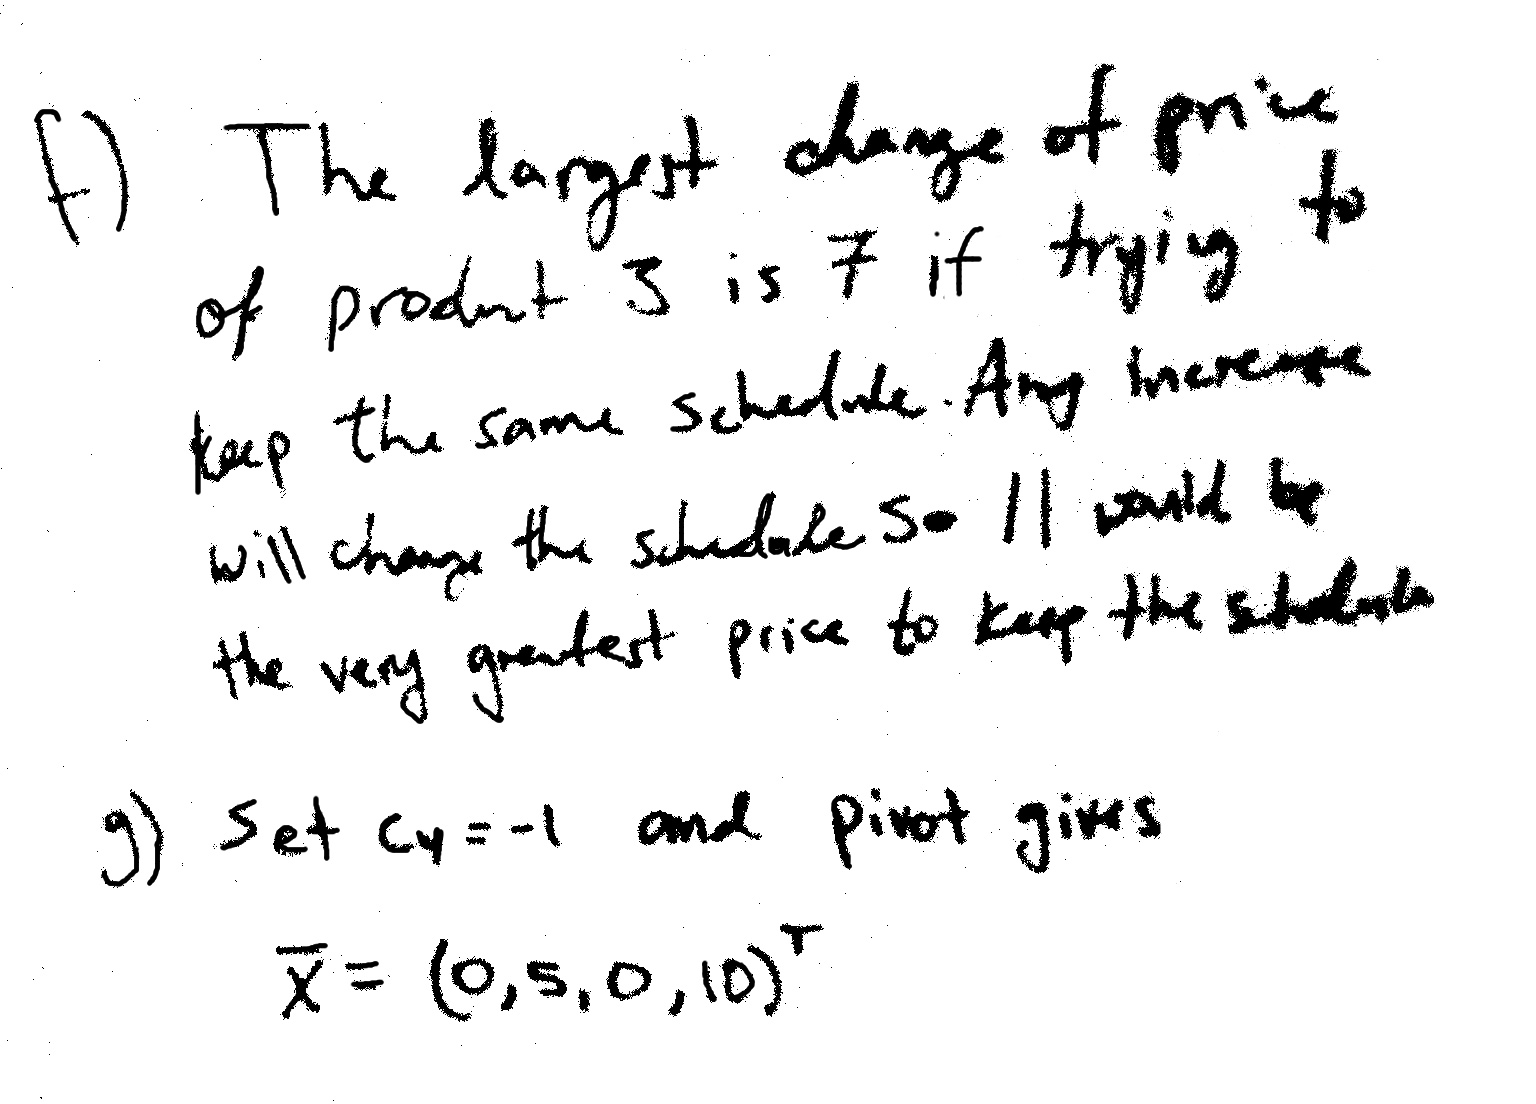 f) The largest change of price
of product 3 is 7 if trying to
keep the same schedule. Any increase
will change the schedule so 11 would be
the very greatest price to keep the schedule
g) Set c₄ = -1 and pivot gives
x̄ = (0, 5, 0, 10)ᵀ